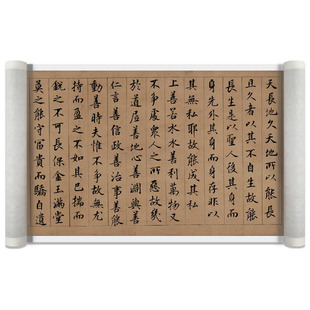 天長地久天地所以能長
且久者以其不自生故能
長生是以聖人後其身而
身先外其身而身存非以
其無私耶故能成其私
上善若水水善利萬物又
不爭處衆人之所惡故幾
於道居善地心善淵與善
仁言善信政善治事善能
動善時夫惟不爭故無尤
持而盈之不如其已揣而
銳之不可長保金玉滿堂
莫之能守富貴而驕自遺